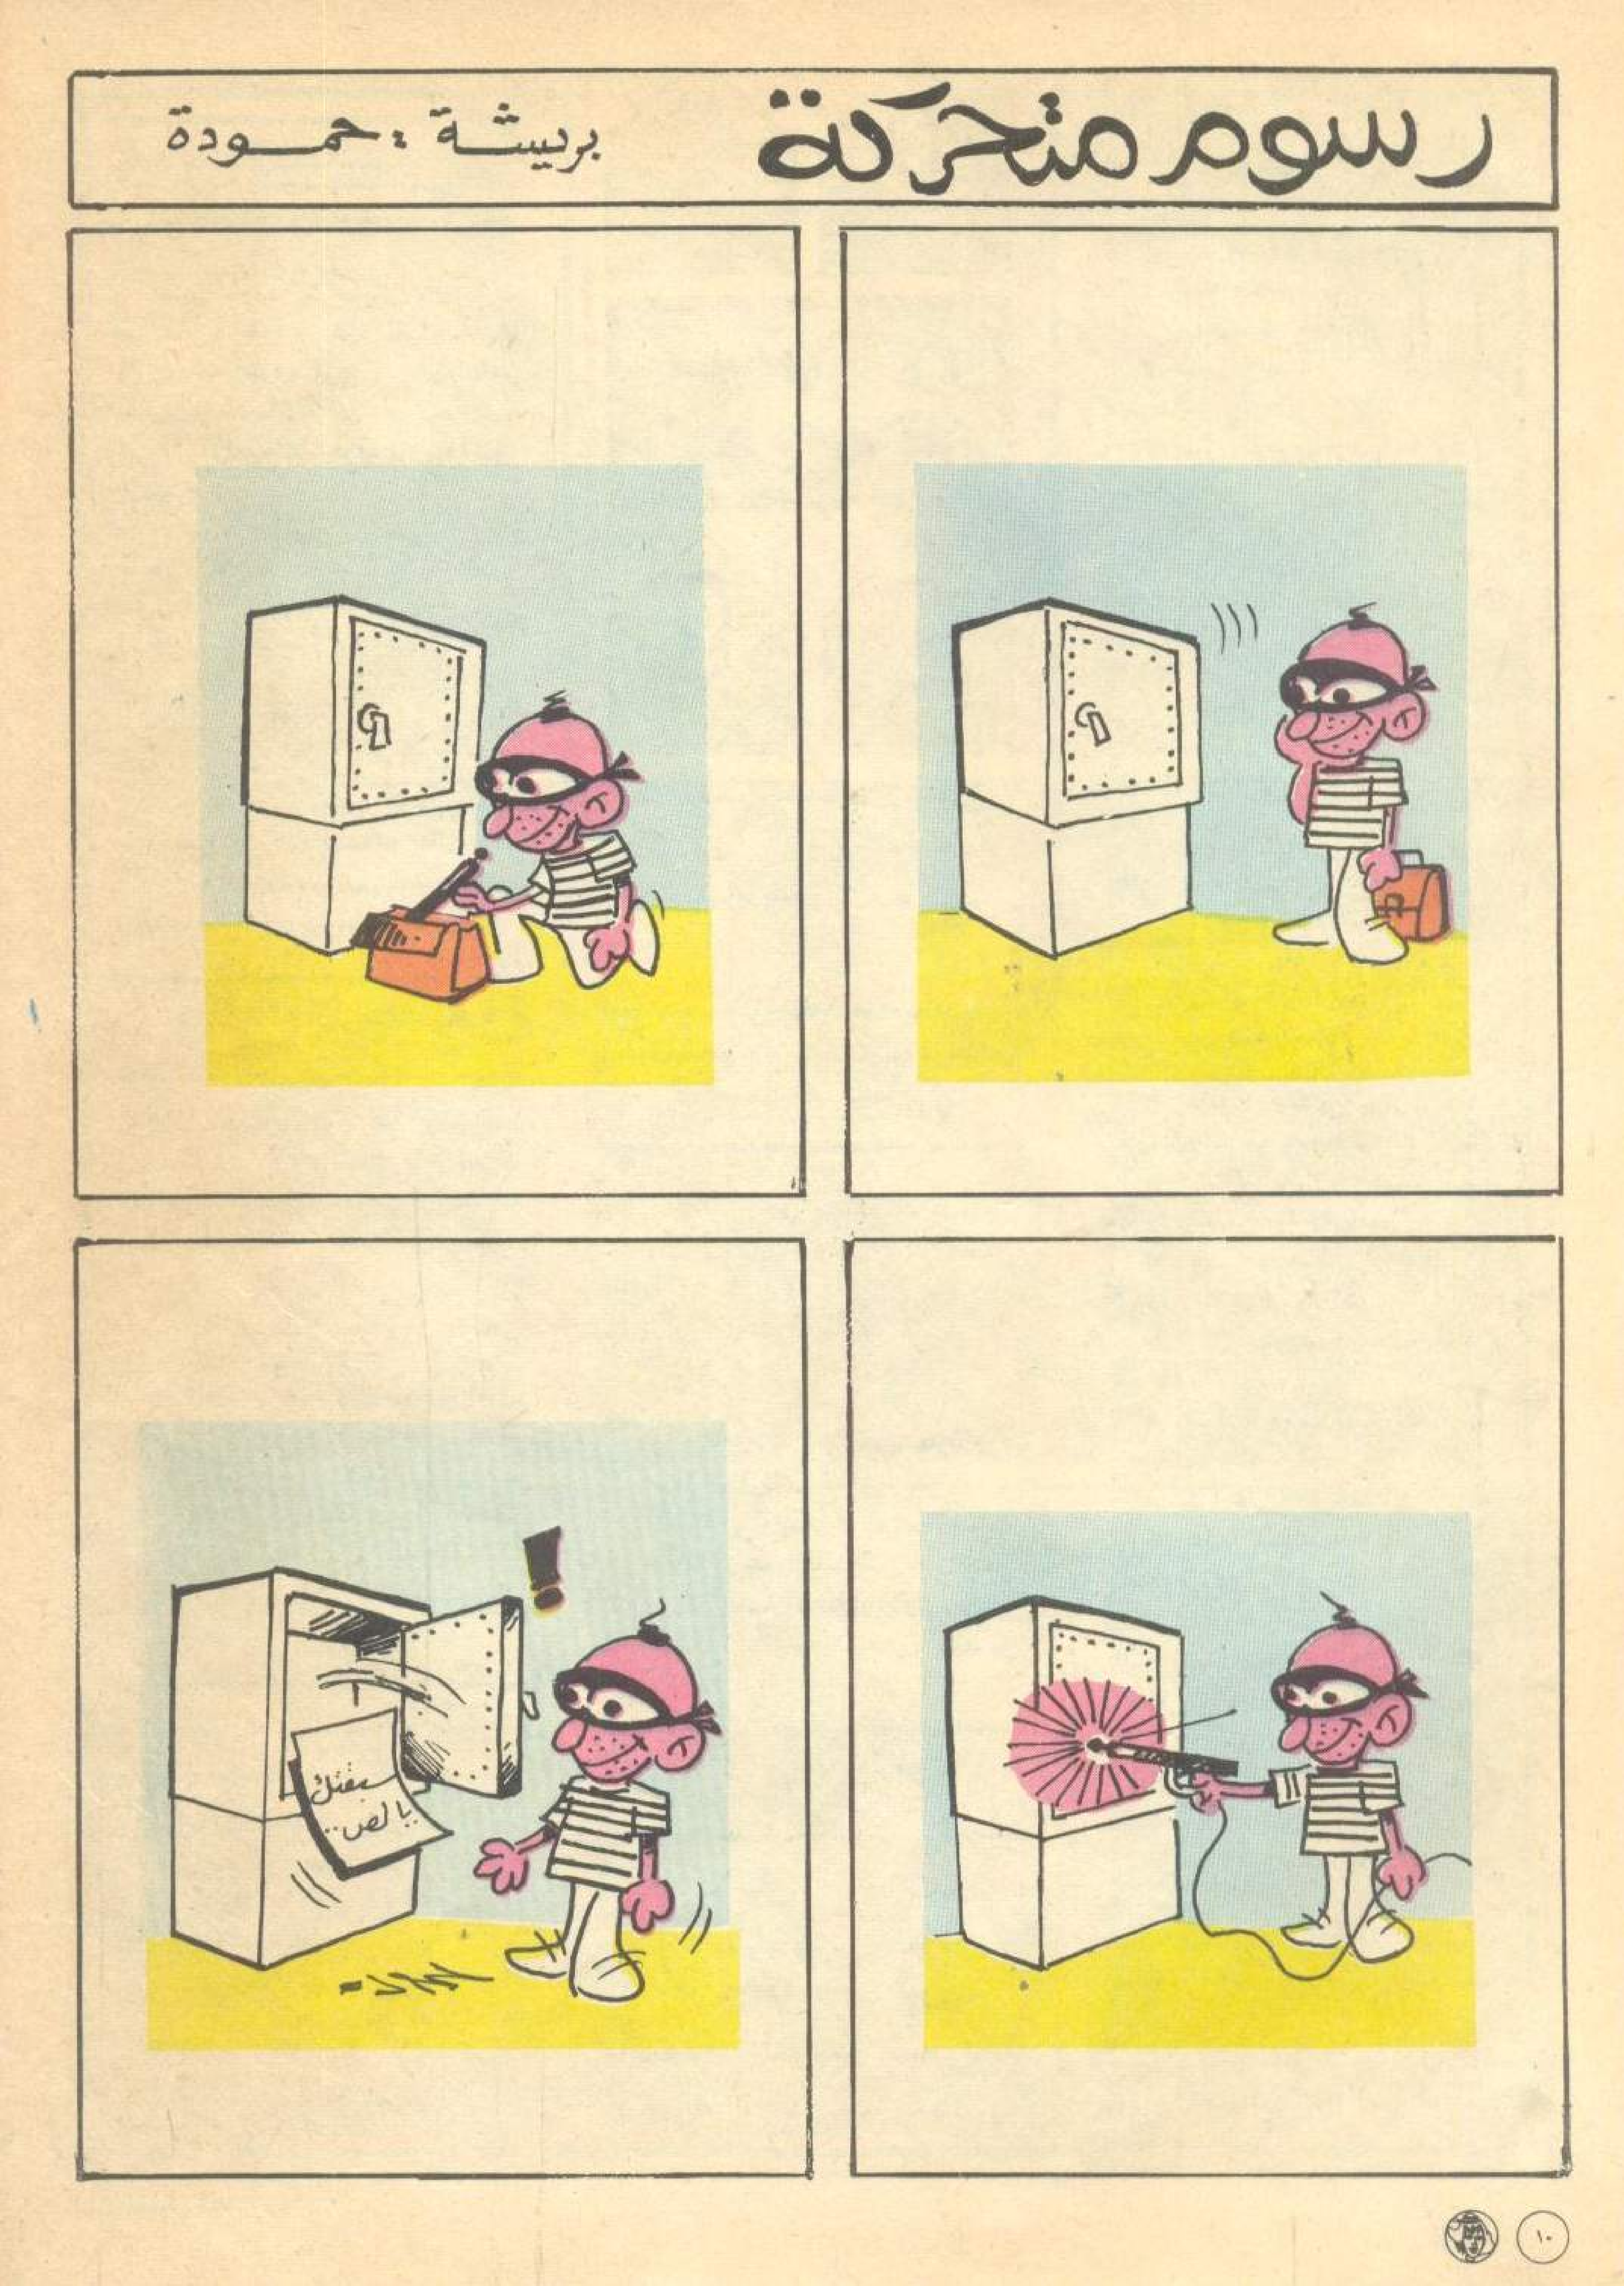 رسوم متحركة
بريشة : حمودة
سبقتك
يا لص ..
١٠